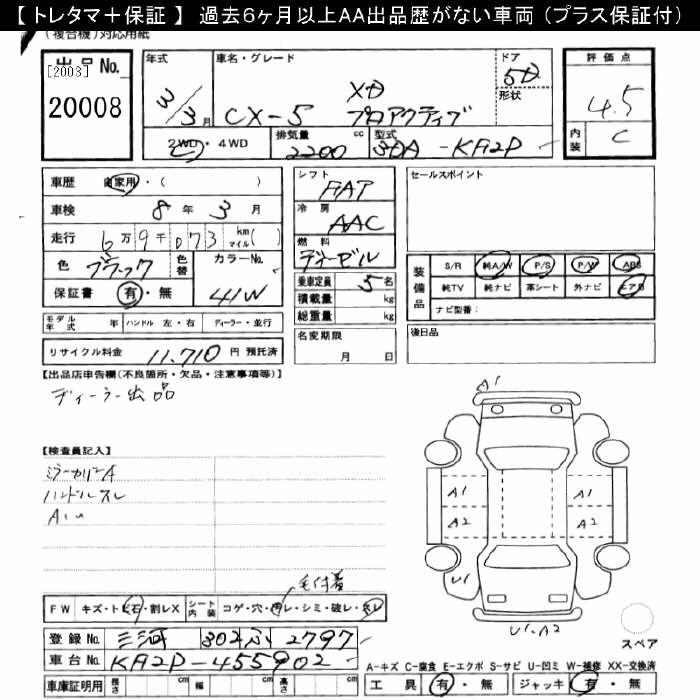 【 トレタマ＋保証 】 過去６ヶ月以上ＡＡ出品歴がない車両（プラス保証付）
(複合機)対応用紙
出品No.
[2003]
20008
年式
3/3月
車名・グレード
XD
CX-5 プロアクティブ
ドア
5D
形状
評価点
4.5
内装
C
2WD・4WD
排気量
2200 cc
型式
3DA-KF2P
車歴 自家用・( )
車検 8年 3月
走行 6万9千073 km マイル( )
色 ブラック
色替
カラーNo.
41W
保証書 有・無
シフト
FAT
冷房
AAC
燃料
ディーゼル
乗車定員 5名
積載量 kg
総重量 kg
名変期限
月 日
セールスポイント
装備品
S/R 純A/W P/S P/W ABS
純TV 純ナビ 革シート 外ナビ エアB
ナビ型番：
後日品
モデル年式 年 ハンドル 左・右 ディーラー・並行
リサイクル料金 11,710 円 預託済
【出品店申告欄(不良箇所・欠品・注意事項等)】
ディーラー出品
【検査員記入】
ハンドルスレ
A1
A1 A1
A2 A2
U1
U1、A2
スペア
毛付着
FW キズ・トビ石・割レX
シート内装 コゲ・穴・切レ・シミ・破レ・スレ
登録No. 三河 302ふ2797
車台No. KF2P-455902
車庫証明用 長さ cm 幅 cm 高さ cm
A-キズ C-腐食 E-エクボ S-サビ U-凹ミ W-補修 XX-交換済
工具 有・無 ジャッキ 有・無